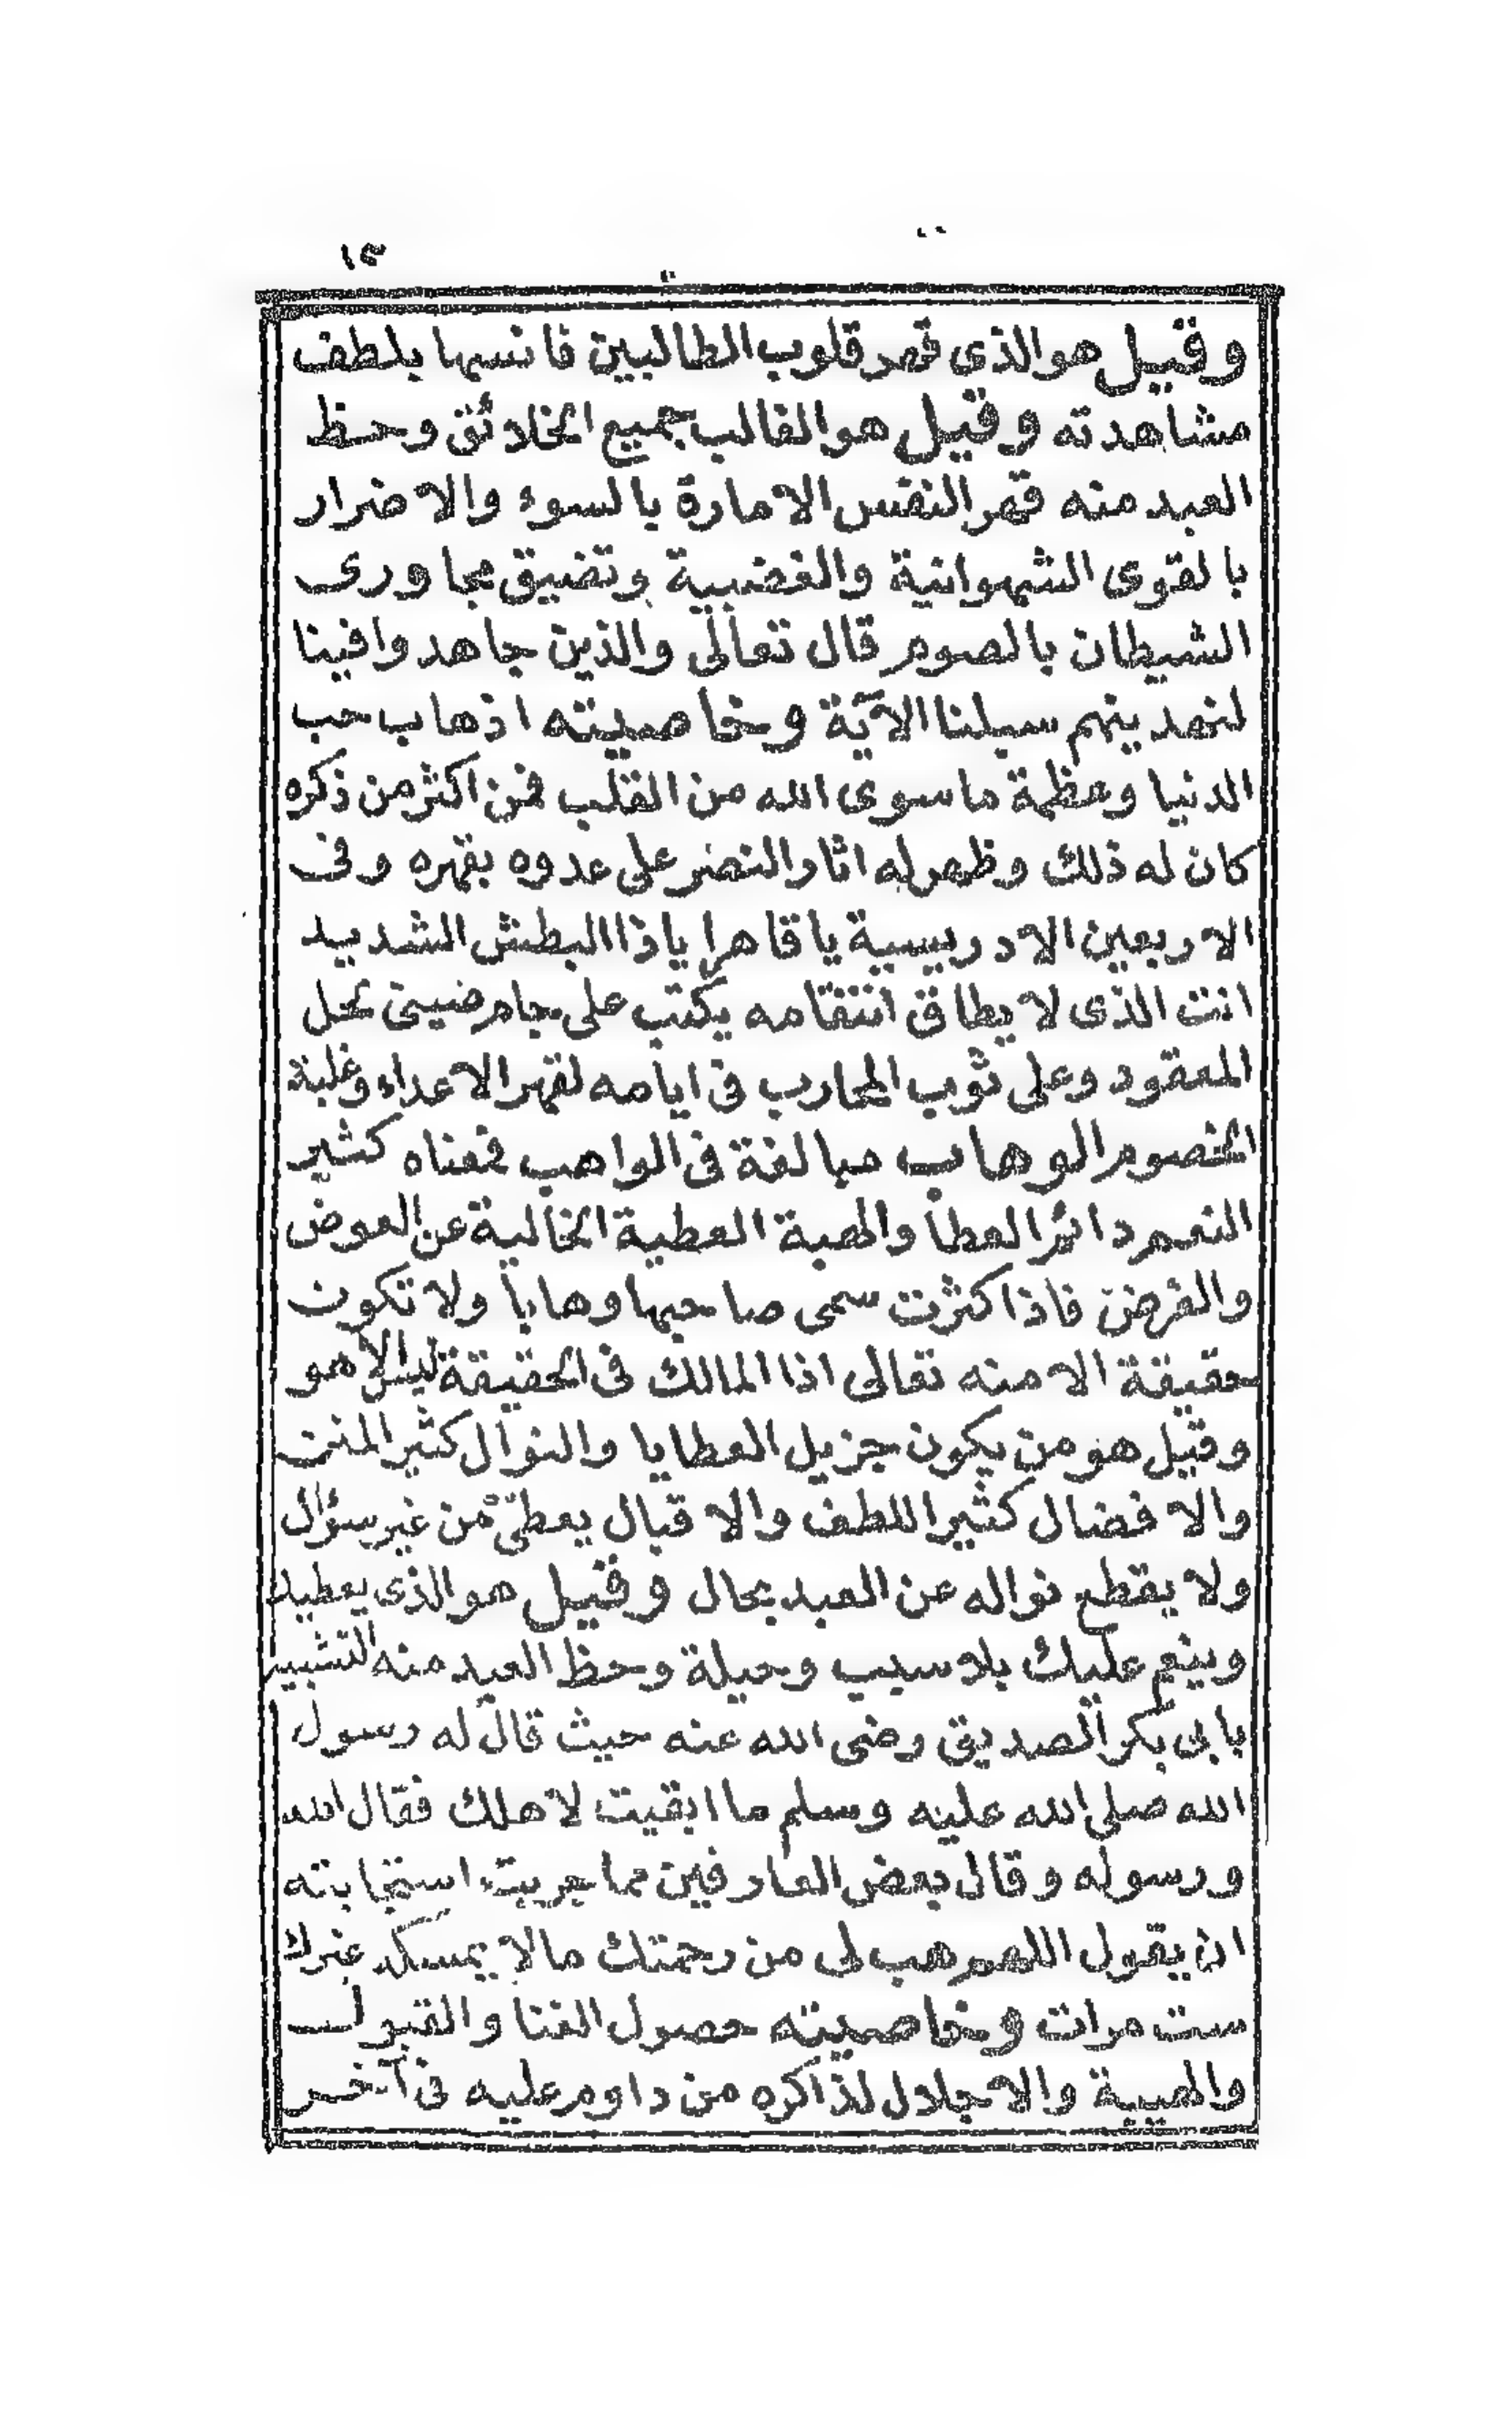 ١٣
وقيل هو الذى قهر قلوب الطالبين فانسها بلطف
مشاهدته وقيل هو الغالب جميع الخلائق وحظ
العبد منه قهر النفس الامارة بالسوء والاضرار
بالقوى الشهوانية والغضبية وتضييق مجاورى
الشيطان بالصوم قال تعالى والذين جاهدوا فينا
لنهدينهم سبلنا الآية وخاصيته اذهاب حب
الدنيا وعظمة ماسوى الله من القلب فمن اكثر من ذكره
كان له ذلك وظهر له اثار النصر على عدوه بقهره وفى
الاربعين الادريسية يا قاهر ياذا البطش الشديد
انت الذى لا يطاق انتقامه يكتب على جام صينى لحل
المعقود وعلى ثوب المحارب فى ايامه لقهر الاعداء وغلبة
الخصوم الوهاب مبالغة فى الواهب فمعناه كثير
النعم دائم العطا والهبة العطية الخالية عن العوض
والغرض فاذا كثرت سمى صاحبها وهابا ولا تكون
حقيقة الا منه تعالى اذا المالك فى الحقيقة ليس الا هو
وقيل هو من يكون جزيل العطايا والنوال كثير المنن
والافضال كثير اللطف والاقبال يعطى من غير سؤال
ولا يقطع نواله عن العبد بحال وقيل هو الذى يعطيك
وينعم عليك بلا سبب وحيلة وحظ العبد منه التشبيه
بابى بكر الصديق رضى الله عنه حيث قال له رسول
الله صلى الله عليه وسلم ما ابقيت لاهلك فقال الله
ورسوله وقال بعض العارفين مما جربت استجابته
ان يقول اللهم هب لى من رحمتك مالا يمسكه غيرك
ست مرات وخاصيته حصول الغنا والقبول
والهيبة والاجلال لذاكره من داوم عليه فى آخر